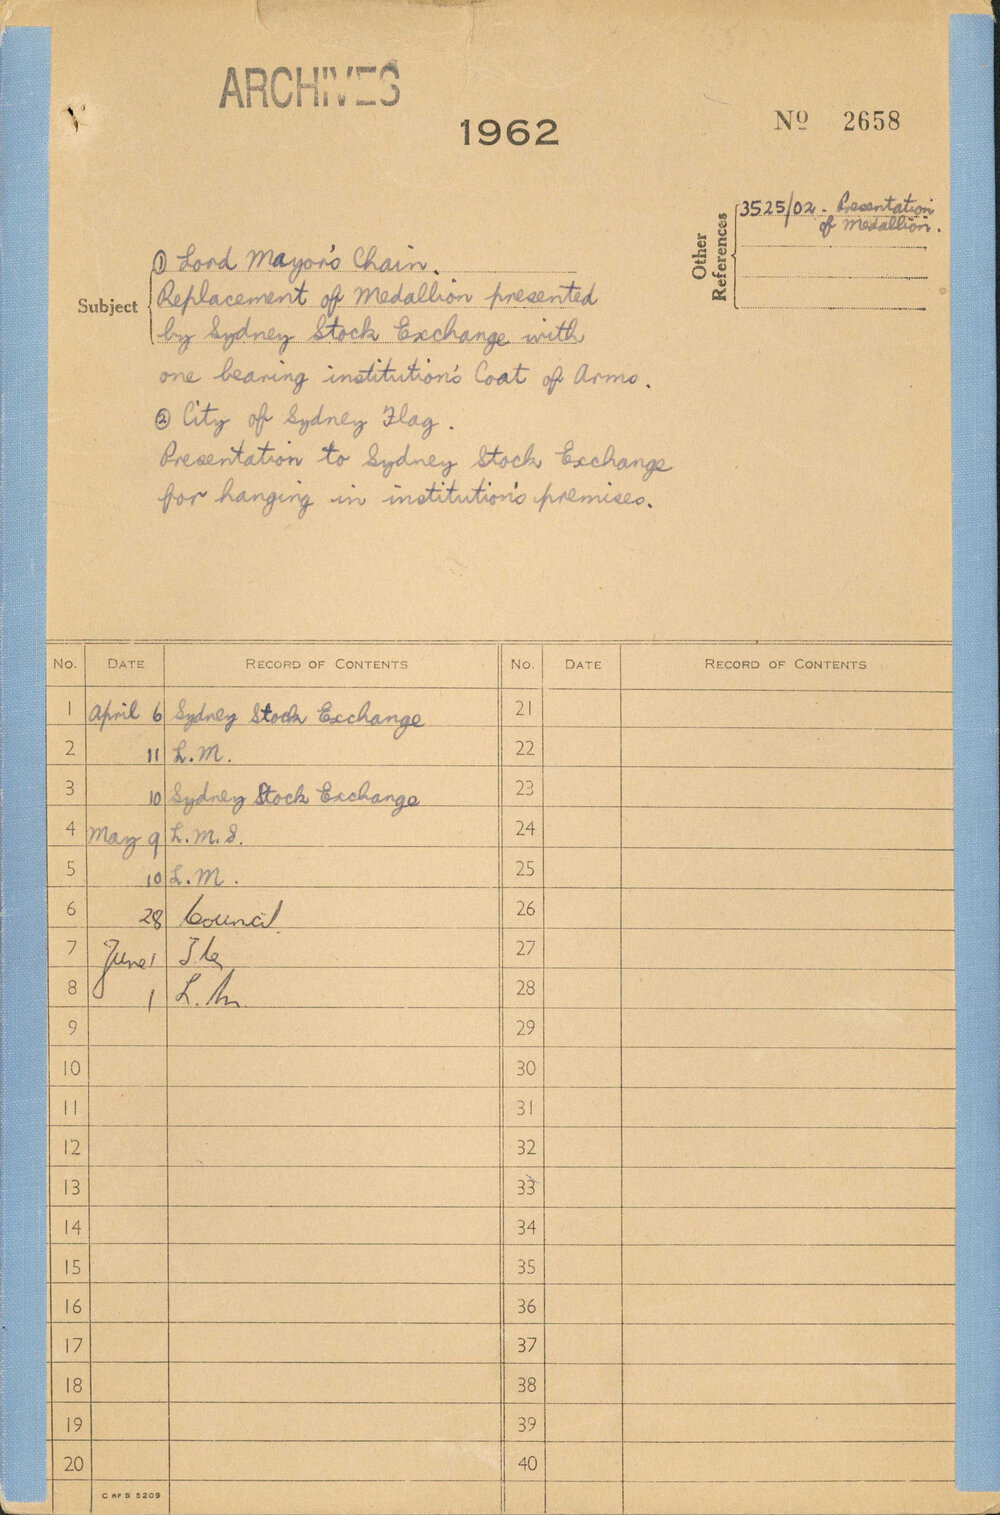 ARCHIVES
1962
Nº 2658
Other References
3525/02 - Presentation
of Medallion.
Subject
① Lord Mayor's Chain.
Replacement of Medallion presented
by Sydney Stock Exchange with
one bearing institution's Coat of Arms.
② City of Sydney Flag.
Presentation to Sydney Stock Exchange
for hanging in institution's premises.
No. DATE RECORD OF CONTENTS No. DATE RECORD OF CONTENTS
1 April 6 Sydney Stock Exchange 21
2 11 L.M. 22
3 10 Sydney Stock Exchange 23
4 May 9 L.M.S. 24
5 10 L.M. 25
6 28 Council 26
7 June 1 27
8 1 L.M. 28
9 29
10 30
11 31
12 32
13 33
14 34
15 35
16 36
17 37
18 38
19 39
20 40
C OF S 5209